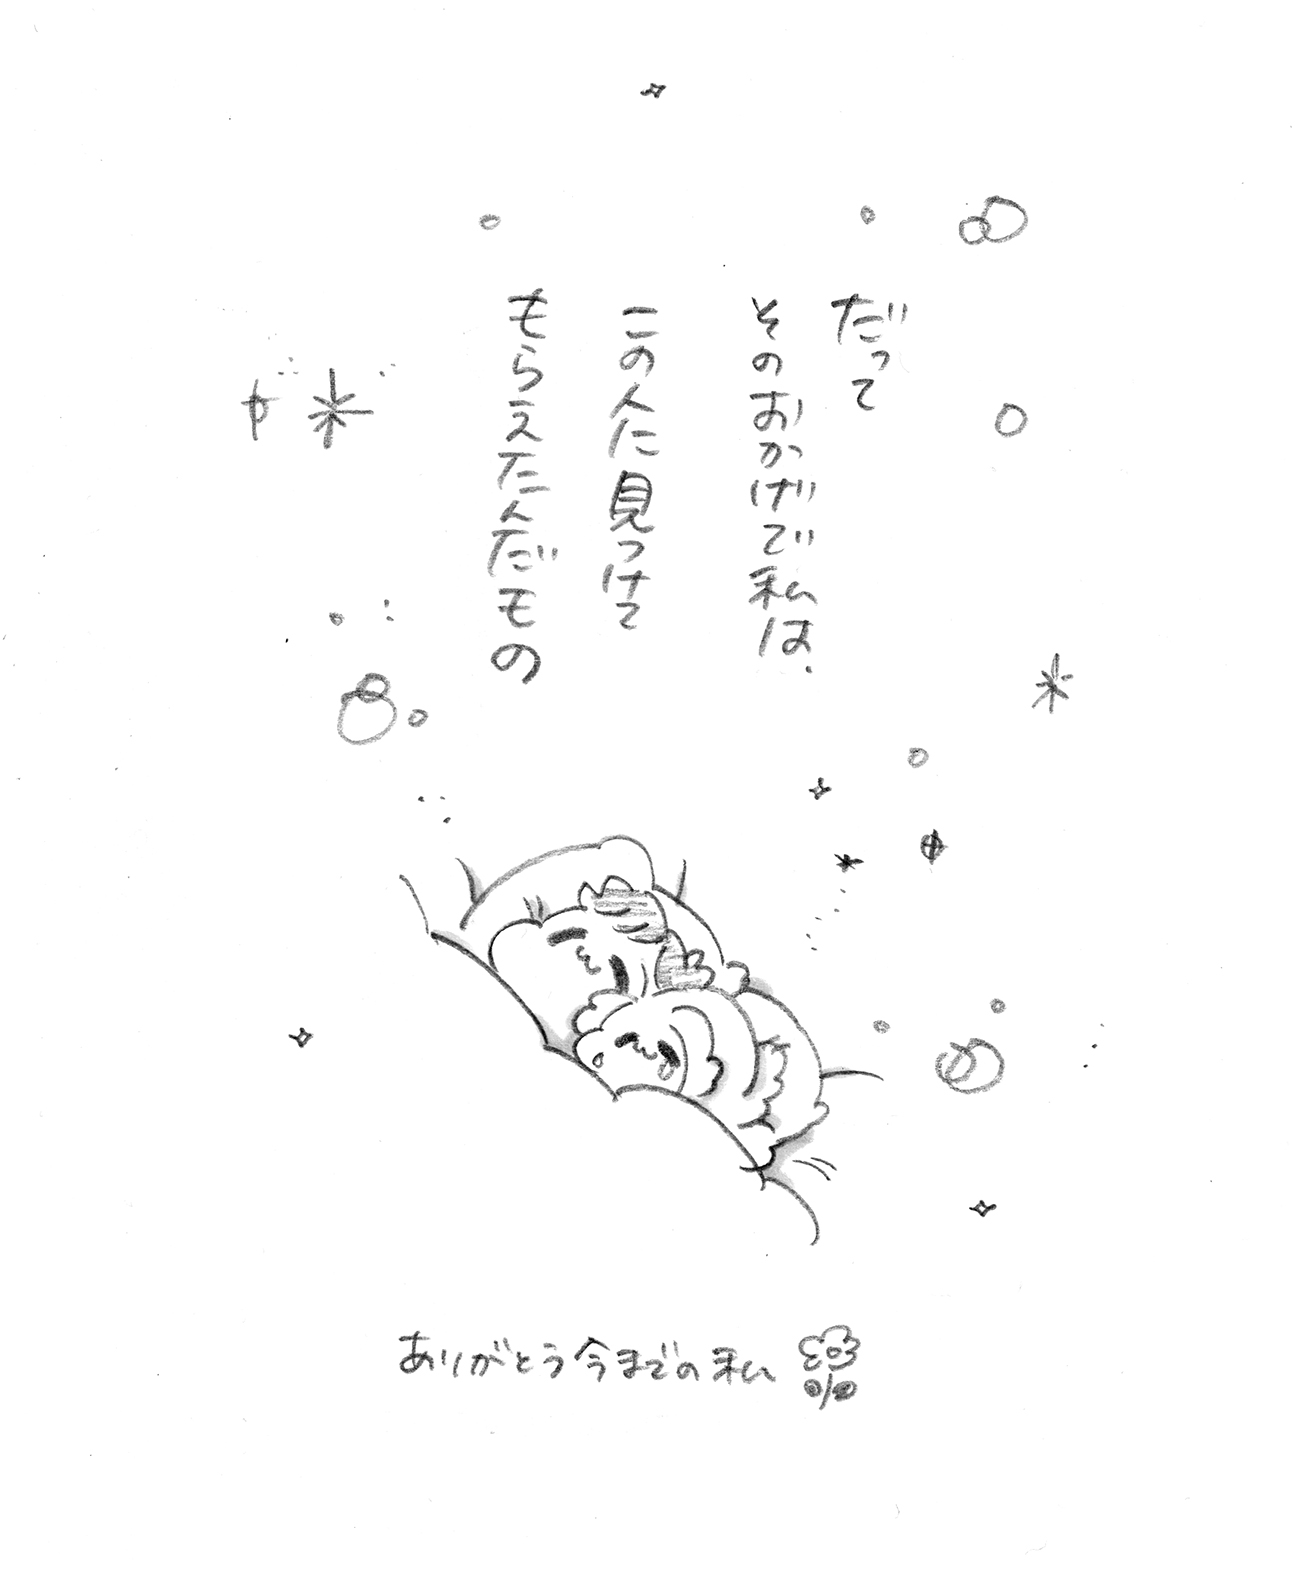 だって
そのおかげで私は、
この人に見つけて
もらえたんだもの
ありがとう今までの私